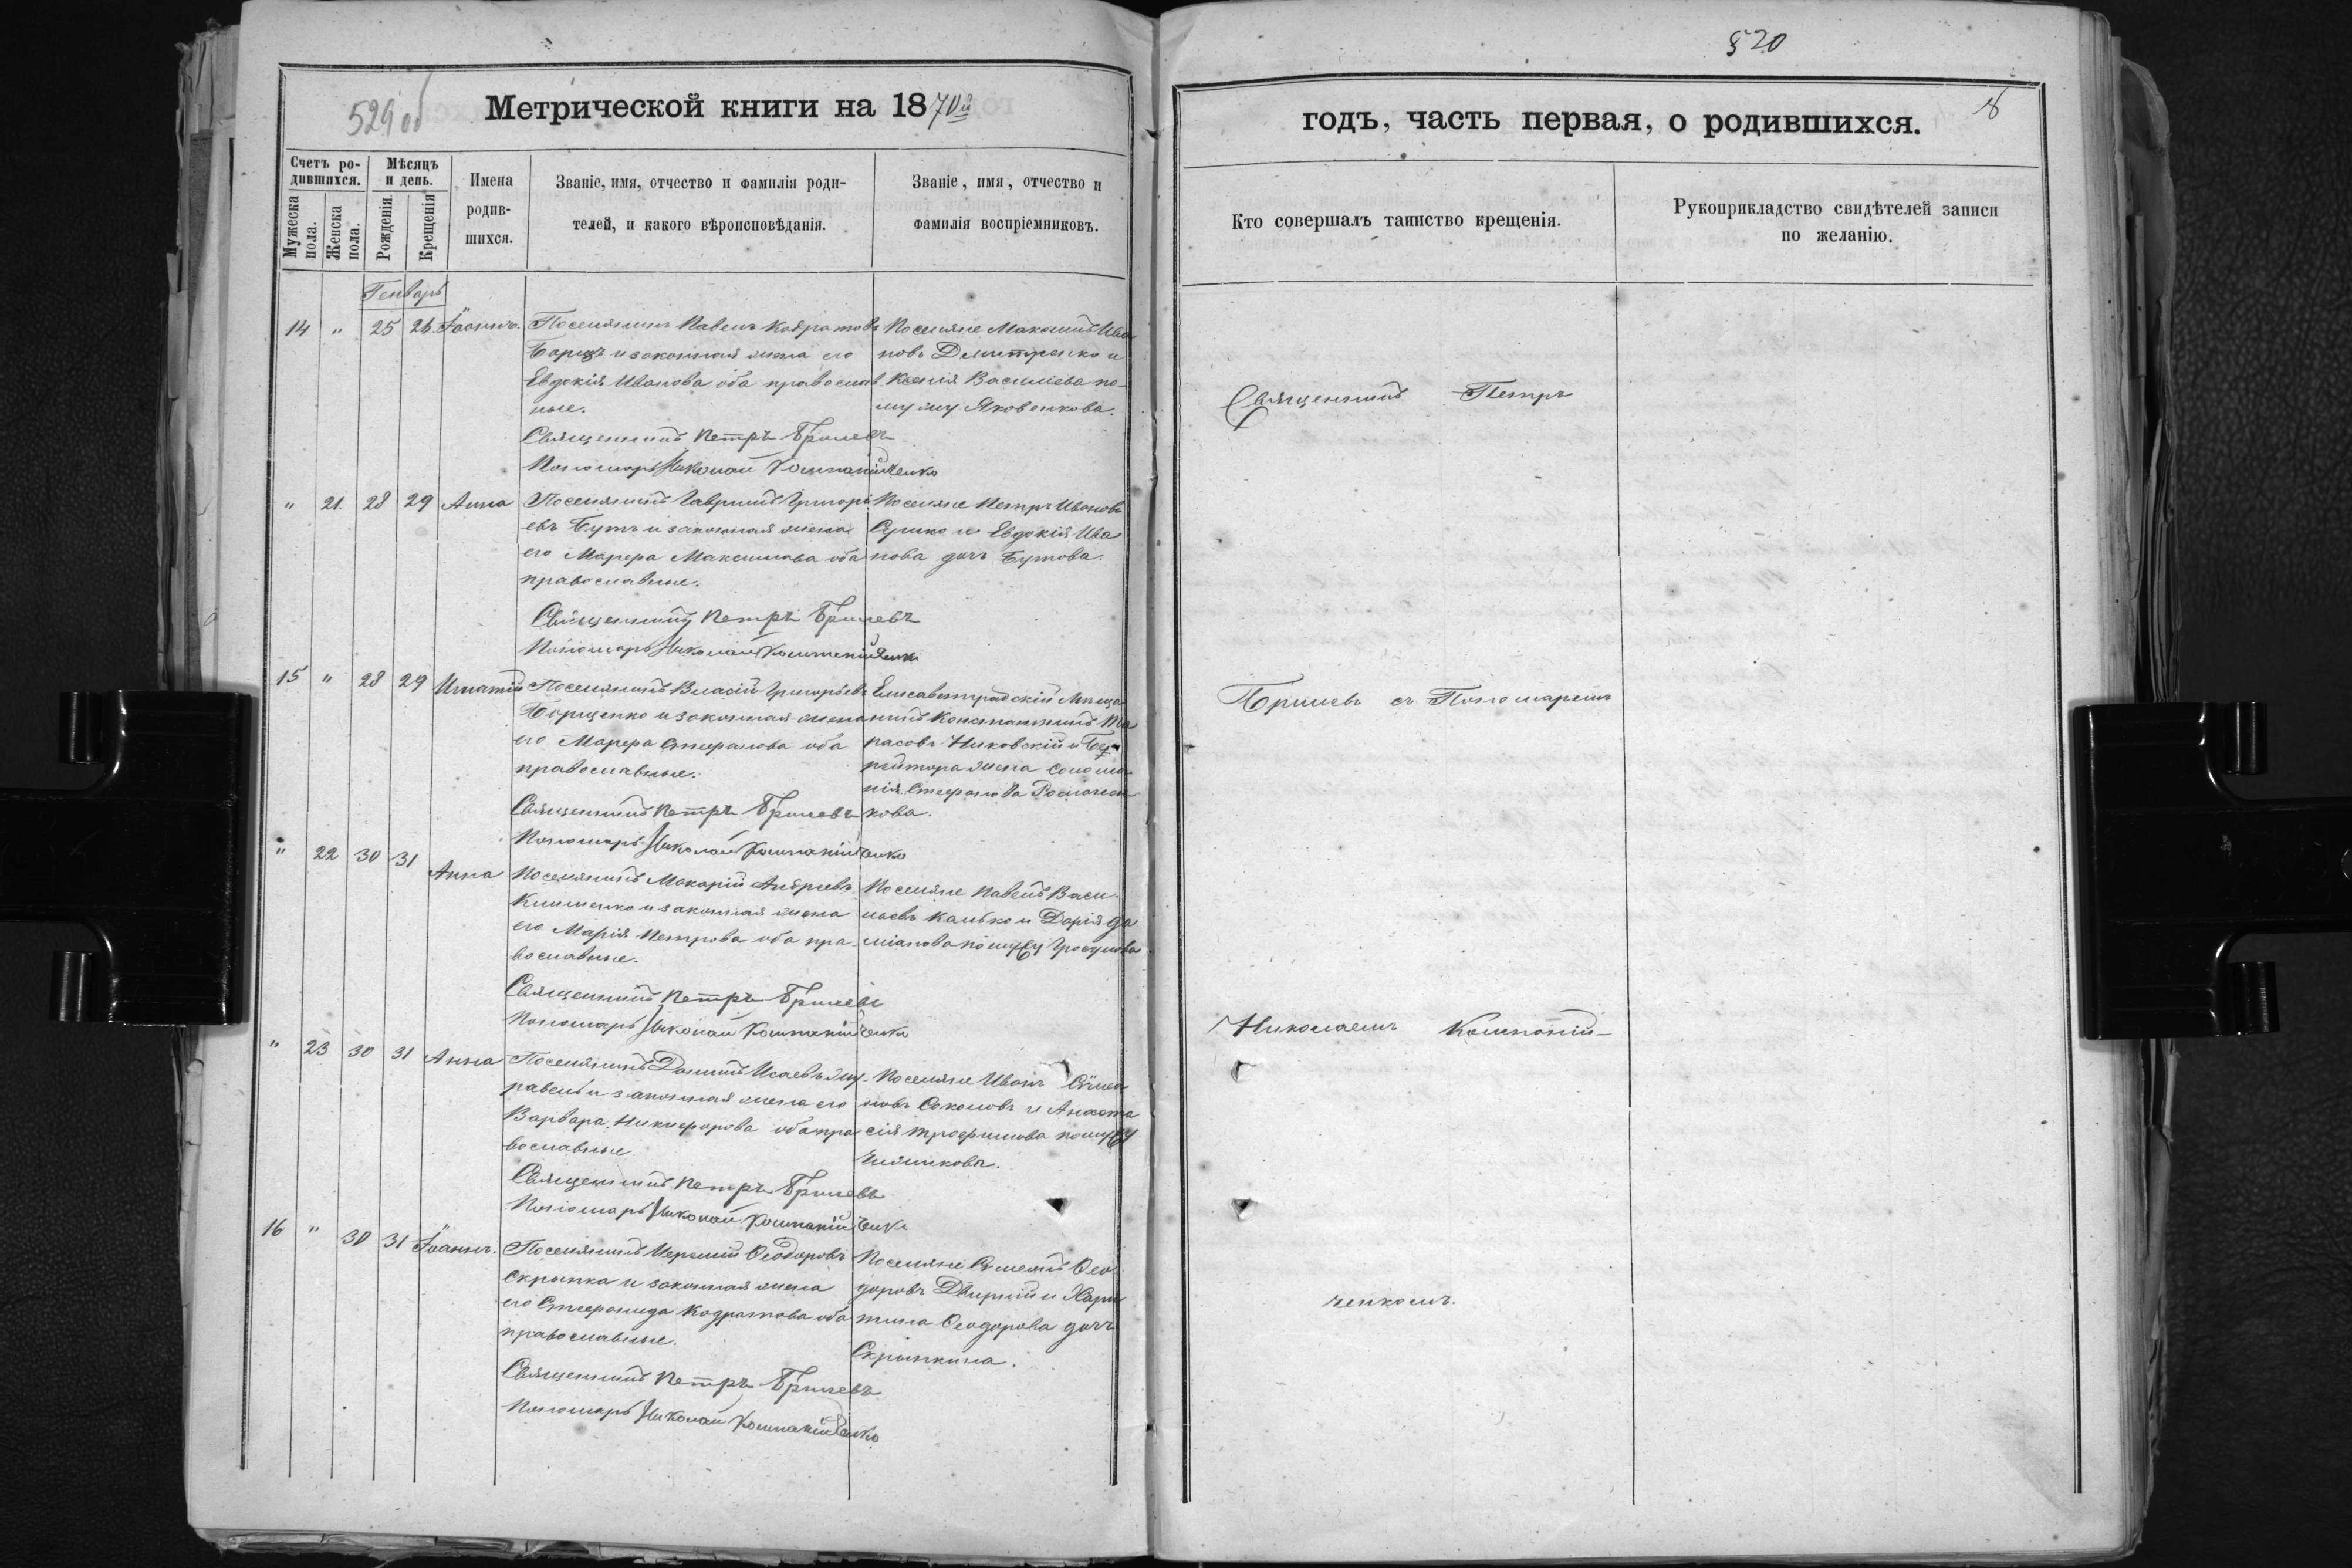 529 об
Метрической книги на 1870й
Счетъ ро-
дившихся.
Мужеска
пола.
Женска
пола.
Мѣсяцъ
и день.
Рожденія
Крещенія
Имена
родив-
шихся.
Званіе, имя, отчество и фамилія роди-
телей, и какого вѣроисповѣданія.
Званіе, имя, отчество и
фамилія воспріемниковъ.
Генварь
14 " 25 26 Іоаннъ.
Поселянинъ Павелъ Кодратовъ
Борщъ и законная жена его
Евдокія Иванова оба православ
ные.
Священникъ Петръ Брилевъ
Пономарь Николай Компанійченко
Поселяне Максимъ Ива
новъ Дмитренко и
Ксенія Василіева по
мужу Яковенкова.
" 21 28 29 Анна
Поселянинъ Гавриилъ Григорь
евъ Бутъ и законная жена
его Марѳа Максимова оба
православные.
Священникъ Петръ Брилевъ
Пономарь Николай Компанійченко
Поселяне Петръ Ивановъ
и Евдокія Ива
нова дочь Бутова.
15 " 28 29 Игнатій
Поселянинъ Власій Григорьевъ
Борщенко и законная жена
его Марѳа Стефанова оба
православные.
Священникъ Петръ Брилевъ
Пономарь Николай Компанійченко
Елисаветградскій Мѣща
нинъ Константинъ Та
расовъ Никовскій и
жена Соломо
нія Стефанова
кова.
" 22 30 31 Анна
Поселянинъ Макарій Андреевъ
Клименко и законная жена
его Марія Петрова оба пра
вославные.
Священникъ Петръ Брилевъ
Пономарь Николай Компанійченко
Поселяне Павелъ Васи
льевъ Калько и Дарія Да
міанова по мужу
" 23 30 31 Анна
Поселянинъ Даніилъ Исаевъ Жу
равель и законная жена его
Варвара Никифорова оба пра
вославные.
Священникъ Петръ Брилевъ
Пономарь Николай Компанійченко
Поселяне Иванъ Сѵмео
новъ Соколовъ и Анаста
сія Трофимова по мужу
16 " 30 31 Іоаннъ.
Поселянинъ Іеремій Ѳеодоровъ
Скрыпка и законная жена
его Стефанида Кодратова оба
православные.
Священникъ Петръ Брилевъ
Пономарь Николай Компанійченко
Поселяне Сѵмеонъ Ѳео
доровъ и Хари
тина Ѳеодорова дочь
Скрыпкина.
520
8
годъ, часть первая, о родившихся.
Кто совершалъ таинство крещенія.
Рукоприкладство свидѣтелей записи
по желанію.
Священникъ Петръ
Брилевъ съ Пономаремъ
Николаемъ Компаній-
ченкомъ.